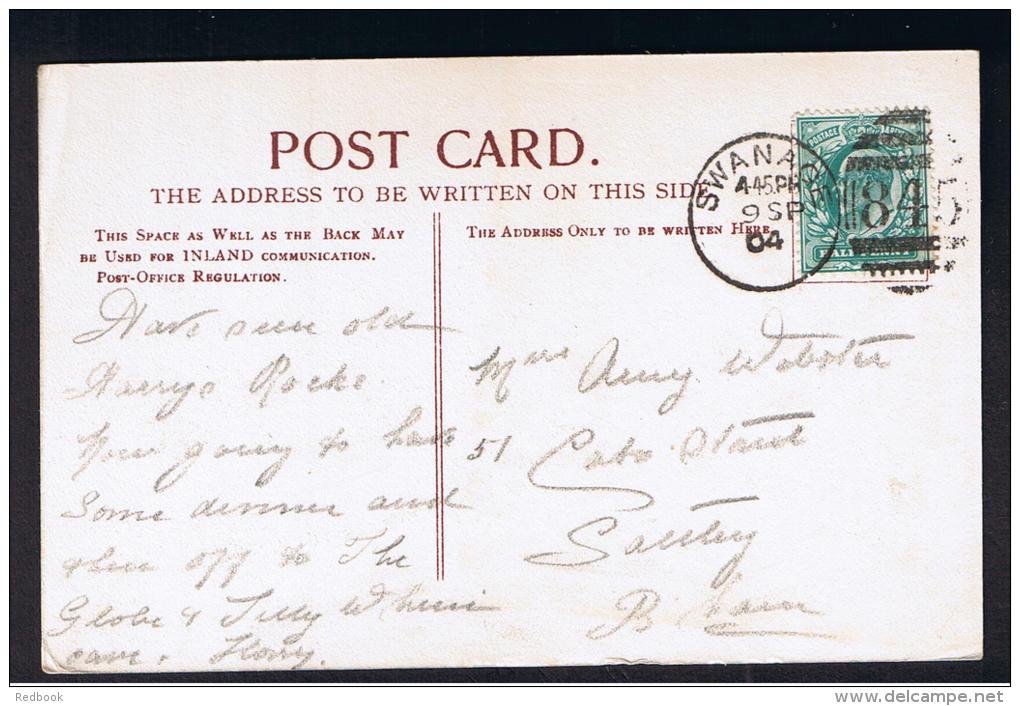 POST CARD.
THE ADDRESS TO BE WRITTEN ON THIS SIDE
THIS SPACE AS WELL AS THE BACK MAY
BE USED FOR INLAND COMMUNICATION.
POST-OFFICE REGULATION.
THE ADDRESS ONLY TO BE WRITTEN HERE
SWANAGE
4.45PM
9 SP
04
POSTAGE
HALFPENNY
Have seen old
Harrys Rocks
Now going to have
Some dinner and
then off to The
Globe & Tilly Whim
cave. Harry.
Amy Webster
51
Saltley
B'ham
Redbook
www.delcampe.net